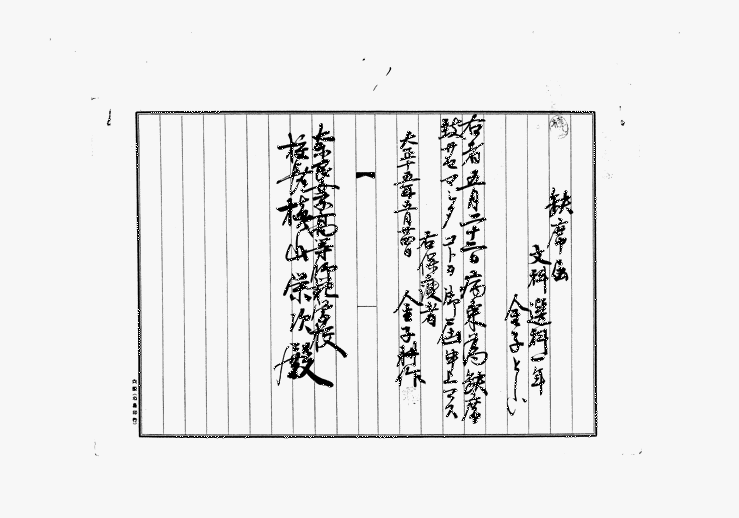 欠席届
文科選科一年
金子としい
右者五月二十二日病気ノ為欠席
致サセマシタコトヲ御届申上マス
大正十五年五月廿四日
右保証者
金子耕作
奈良女子高等師範学校
校長槇山栄次殿